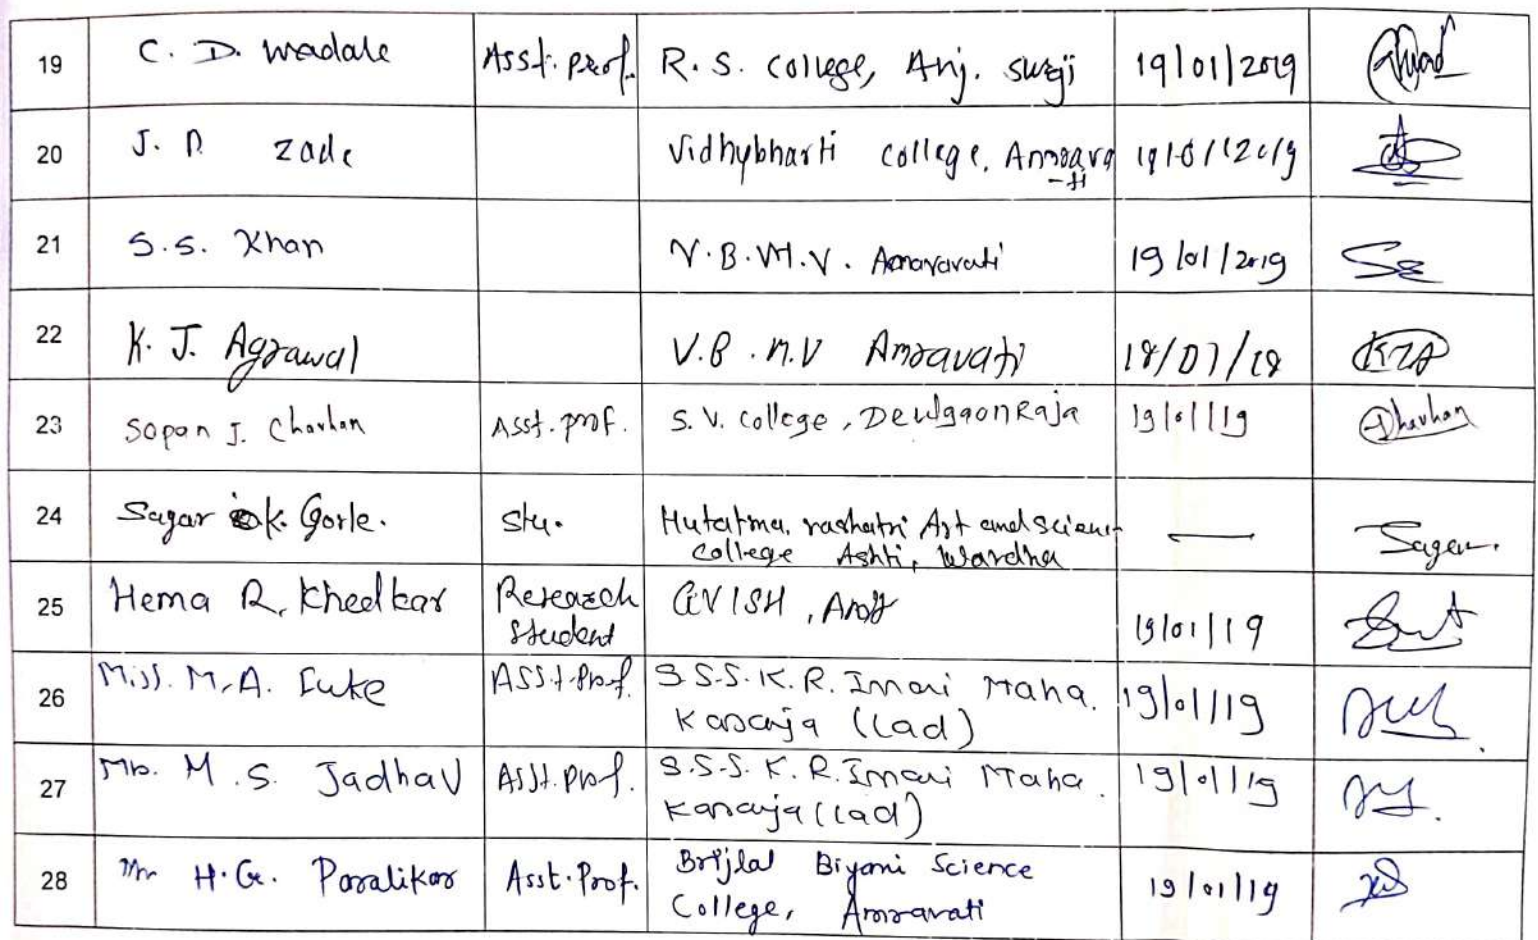 19 C. D. Wadale Asst. Prof. R. S. College, Anj. Surji 19/01/2019
20 J. D. Zade Vidhybharti College, Amravati 19/01/2019
21 S.S. Khan V.B.M.V. Amaravati 19/01/2019
22 K. J. Agrawal V.B.M.V Amravati 18/07/18
23 Sopan J. Chavhan Asst. Prof. S. V. College, DeulgaonRaja 19/01/19
24 Sagar K. Gorle. Stu. Hutatma rashatri Art and Science — Sagar.
College Ashti, Wardha
25 Hema R. Khedkar Research GVISH, 19/01/19
Student
26 Miss. M. A. Asst. Prof. S.S.S.K.R. Innani Maha. 19/01/19
Karanja (Lad)
27 Mr. M.S. Jadhav Asst. Prof. S.S.S.K.R. Innani Maha. 19/01/19
Karanja (Lad)
28 Mr H.G. Paralikar Asst. Prof. Brijlal Biyani Science 19/01/19
College, Amravati